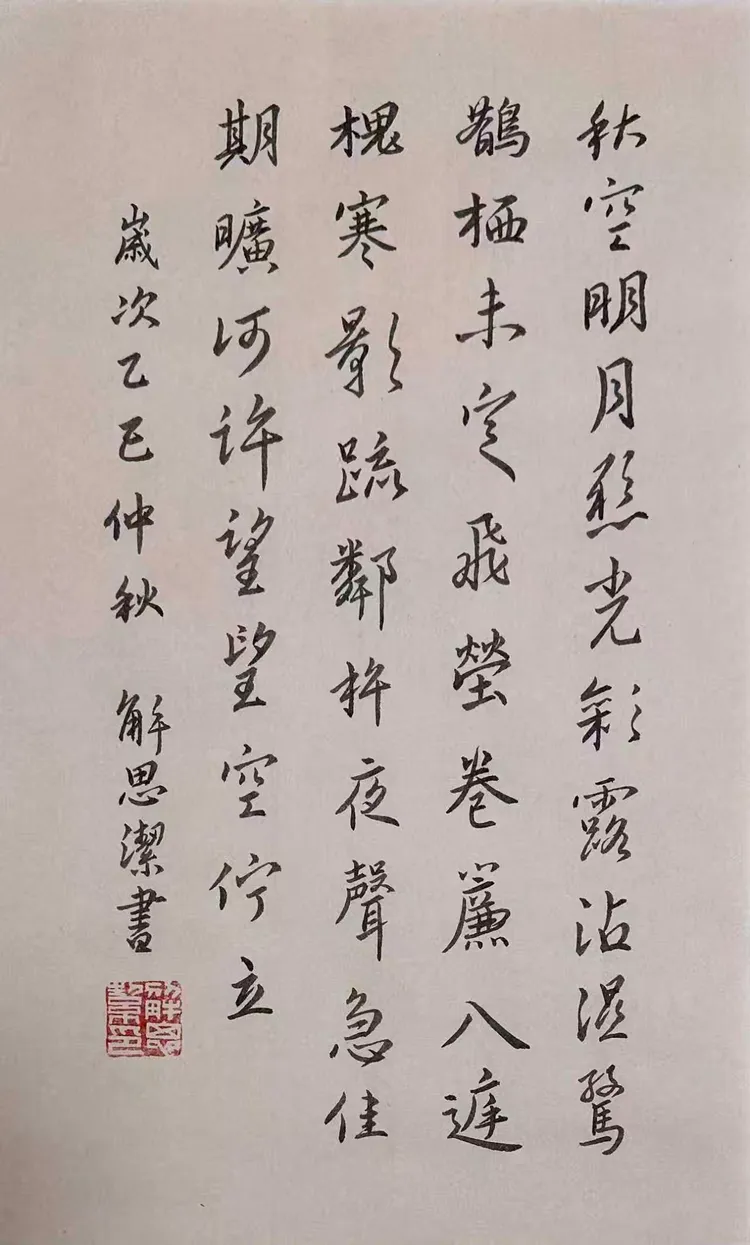 秋空明月懸光彩露沾濕驚
鵲栖未定飛螢卷簾入庭
槐寒影疏鄰杵夜聲急佳
期曠何許望望空佇立
歲次乙巳仲秋 解思潔書